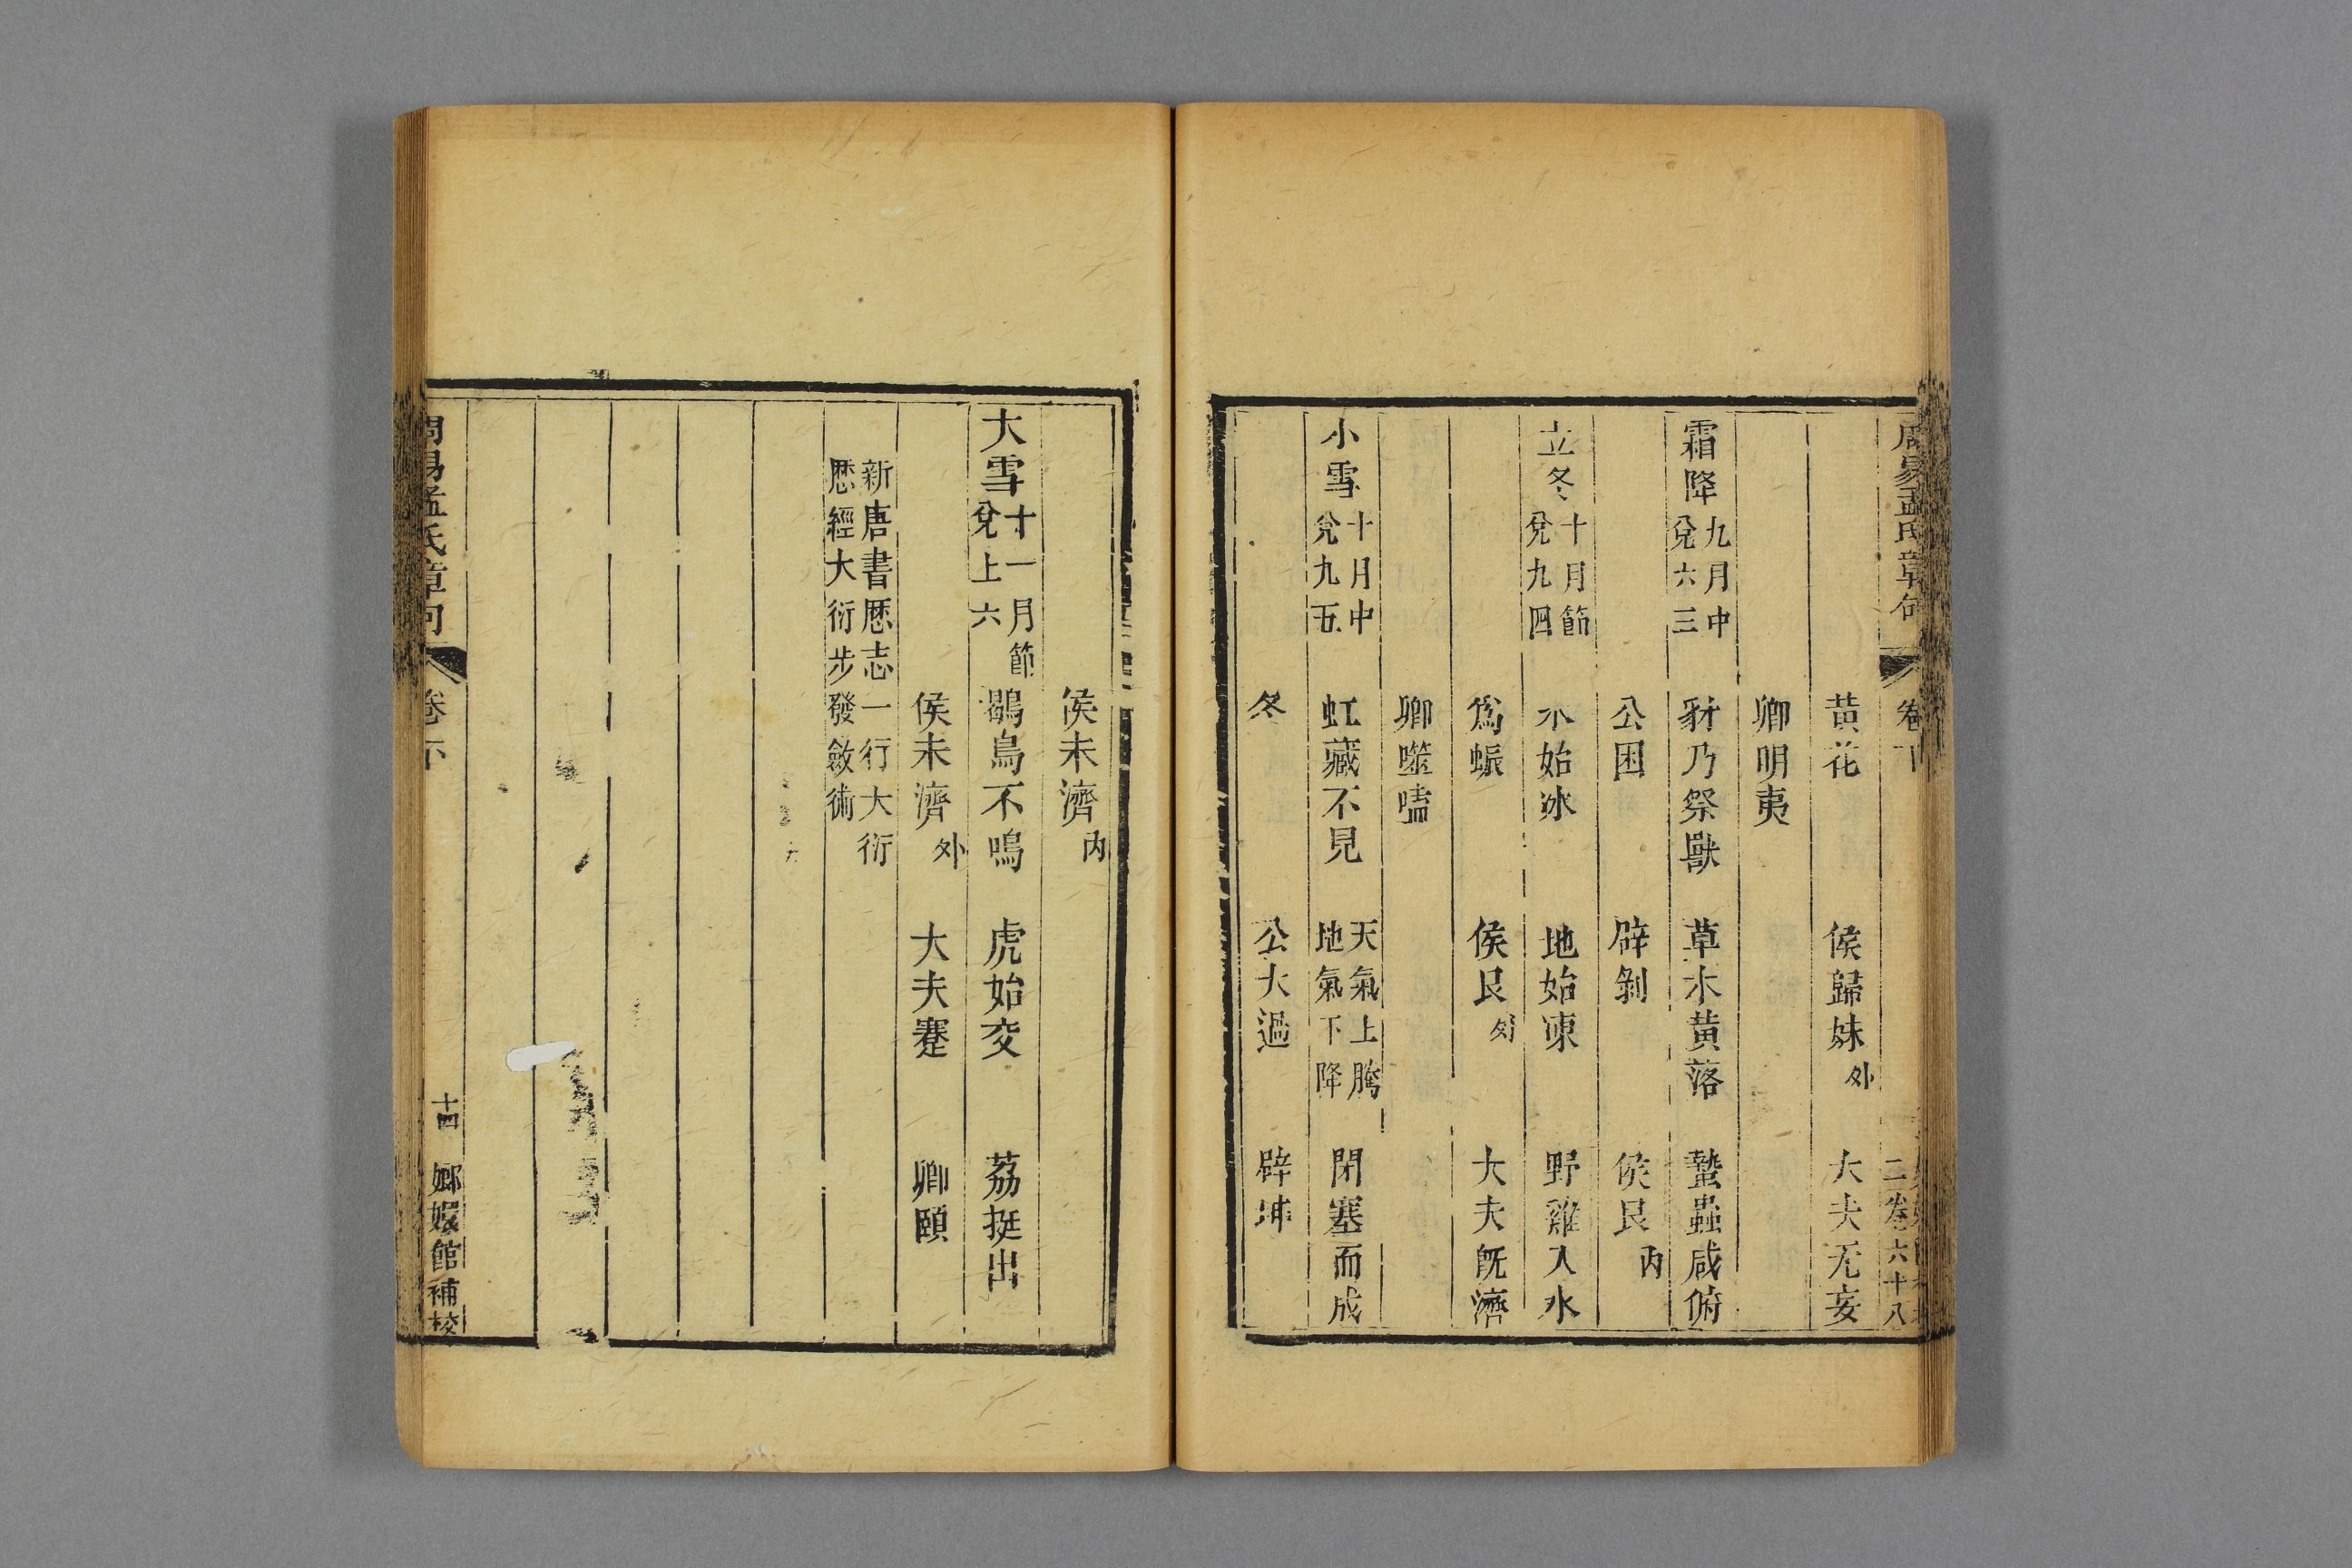 周易孟氏章句 卷下 二卷六十八
黃花 侯歸妹外 大夫无妄
卿明夷
霜降九月中兌六三 豺乃祭獸 草木黃落 蟄蟲咸俯
公困 辟剝 侯艮內
立冬十月節兌九四 水始冰 地始凍 野雞入水
爲蜃 侯艮外 大夫旣濟
卿噬嗑
小雪十月中兌九五 虹藏不見 天氣上騰地氣下降 閉塞而成
冬 公大過 辟坤
侯未濟內
大雪十一月節兌上六 鶡鳥不鳴 虎始交 荔挺出
侯未濟外 大夫蹇 卿頤
新唐書厯志一行大衍
厯經大衍步發斂術
周易孟氏章句 卷下 十四 嫏嬛館補校